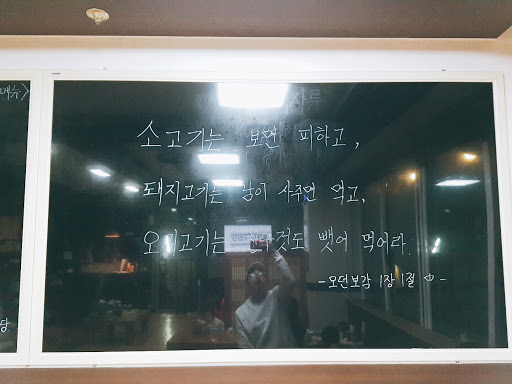 메뉴>
소고기는 보면 피하고,
돼지고기는 남이 사주면 먹고,
오리고기는 것도 뺏어 먹어라.
-모던보감 1장 1절 中-
당.